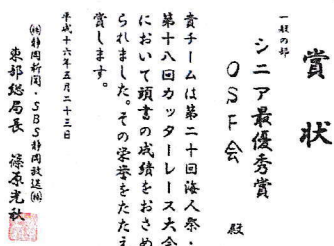 賞状
一般の部
シニア最優秀賞
OSF会 殿
貴チームは第二十回海人祭・
第十八回カッターレース大会
において頭書の成績をおさめ
られました。その栄誉をたたえ
賞します。
平成十六年五月二十三日
㈱静岡新聞・SBS静岡放送㈱
東部総局長 篠原光秋